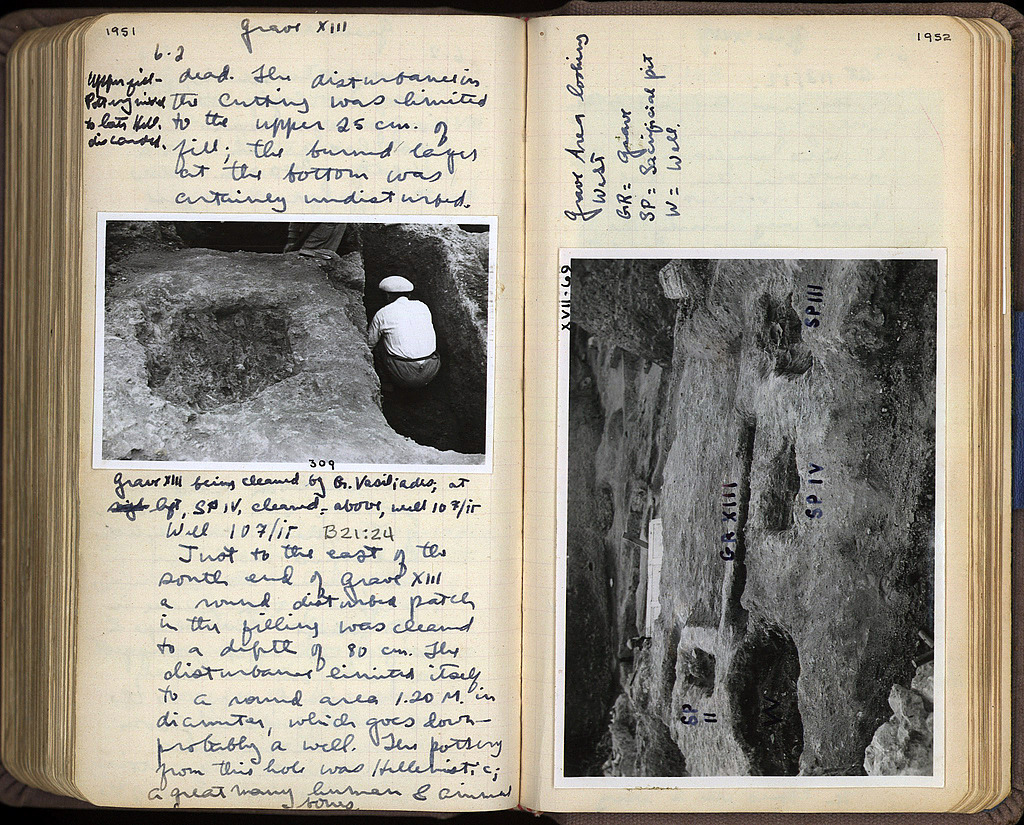 1951
Grave XIII
6.2
Upper fill-
Pottery mixed
to late Hell.
discarded.
dead. The disturbance in
the cutting was limited
to the upper 25 cm. of
fill; the burned layer
at the bottom was
certainly undisturbed.
309
Grave XIII being cleaned by G. Vasiliades, at
left, SP IV, cleaned, above, well 107/ir
Well 107/ir B21:24
Just to the east of the
south end of Grave XIII
a round disturbed patch
in the filling was cleaned
to a depth of 80 cm. The
disturbance limited itself
to a round area 1.20 M. in
diameter, which goes down-
probably a well. The pottery
from this hole was Hellenistic;
a great many human & animal
bones
1952
Grave Area looking
West
GR = grave
SP = Sacrificial pit
W = Well.
XVII-69
SP III
SP IV
GR XIII
SP II
W